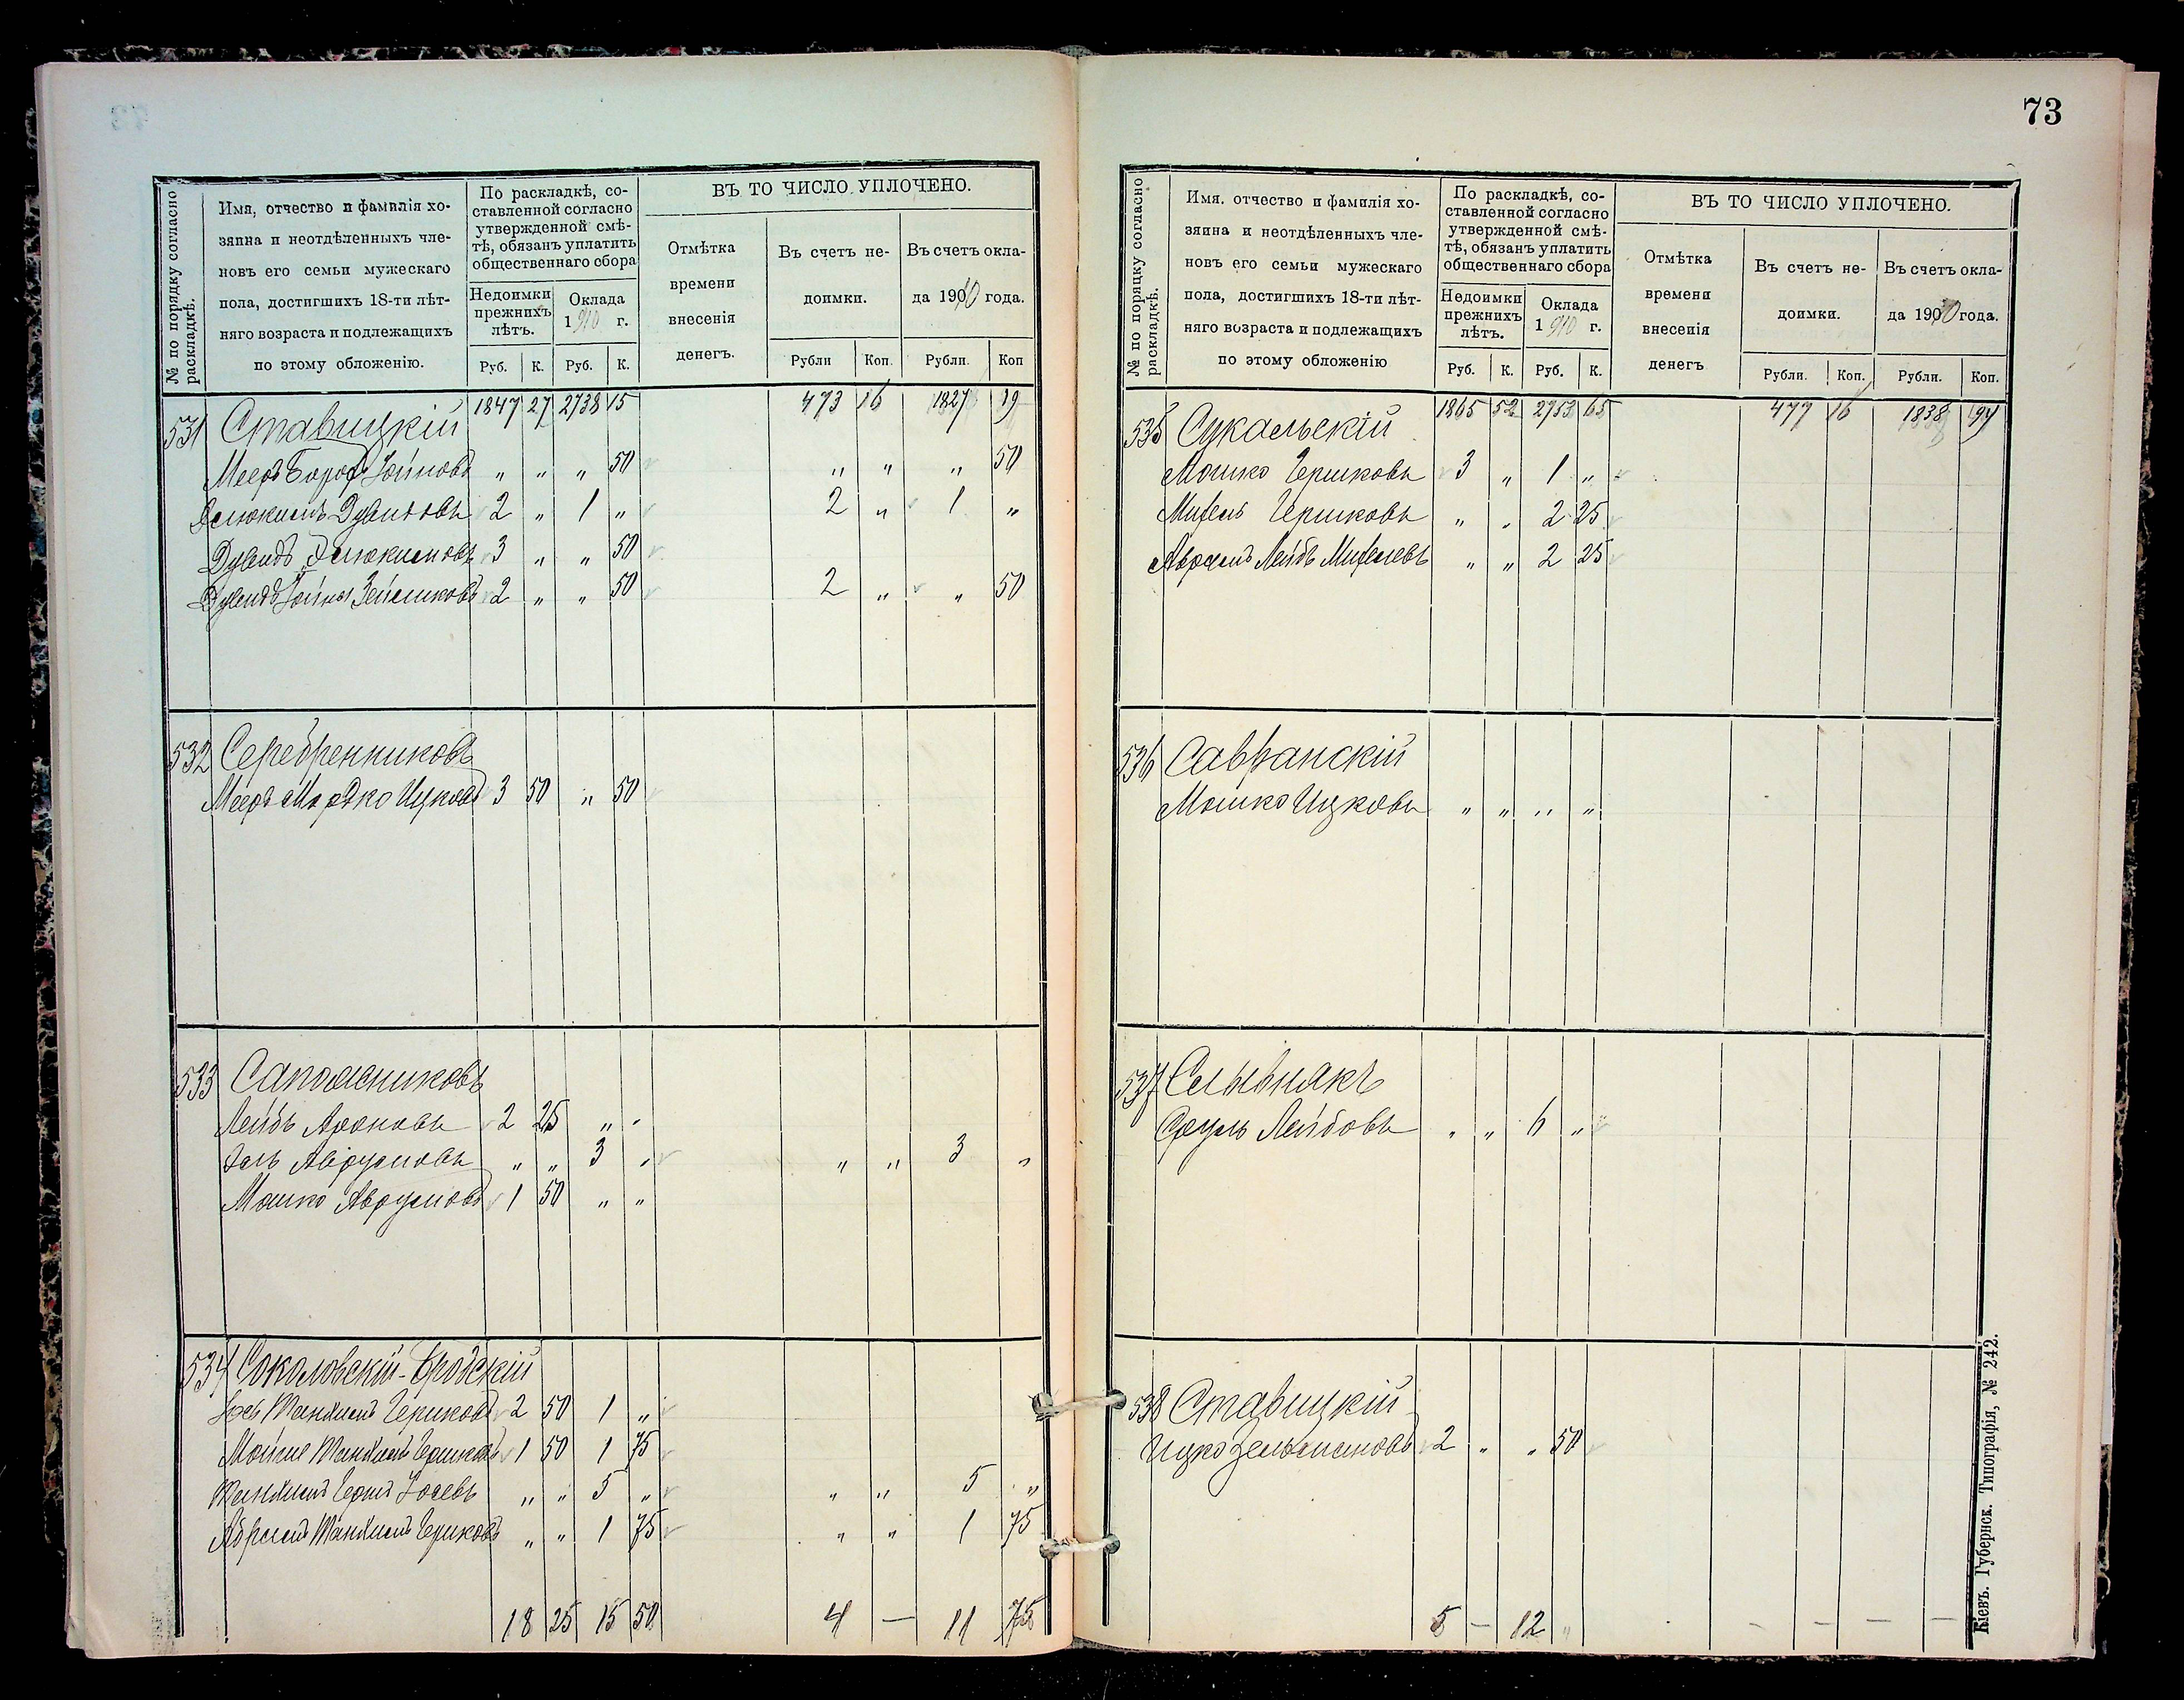 73
№ по порядку согласно раскладкѣ.
Имя, отчество и фамилія хо-
зяина и неотдѣленныхъ чле-
новъ его семьи мужескаго
пола, достигшихъ 18-ти лѣт-
няго возраста и подлежащихъ
по этому обложенію.
По раскладкѣ, со-
ставленной согласно
утвержденной смѣ-
тѣ, обязанъ уплатить
общественнаго сбора
Недоимки прежнихъ лѣтъ.
Оклада 1910 г.
Руб. К. Руб. К.
ВЪ ТО ЧИСЛО УПЛОЧЕНО.
Отмѣтка
времени
внесенія
денегъ.
Въ счетъ не-
доимки.
Въ счетъ окла-
да 1910 года.
Рубли Коп. Рубли. Коп
1847 27 2738 15 473 16 1827 19
531 Ставицкій
Мееръ Борохъ Іойновъ " " " 50 " " " 50
Эліокимъ Дувидовъ 2 " 1 " 2 " 1 "
Дувидъ Эліокимовъ 3 " " 50
Дувидъ Іойна Зейликовъ 2 " " 50 2 " " 50
532 Серебренниковъ
Мееръ Мордко Ицковъ 3 50 " 50
533 Сапожниковъ
Лейбъ Ароновъ 2 25 " "
Аврумовъ " " 3 " " " 3 "
Мошко Аврумовъ 1 50 " "
534 Соколовскій-Бродскій
Іось Танхимъ Гершковъ 2 50 1 "
Мойше Танхимъ Гершковъ 1 50 1 75
Танхимъ Гершъ Іосевъ " " 5 " " " 5 "
Абрамъ Танхимъ Гершковъ " " 1 75 " " 1 75
18 25 15 50 4 — 11 75
№ по порядку согласно раскладкѣ.
Имя, отчество и фамилія хо-
зяина и неотдѣленныхъ чле-
новъ его семьи мужескаго
пола, достигшихъ 18-ти лѣт-
няго возраста и подлежащихъ
по этому обложенію
По раскладкѣ, со-
ставленной согласно
утвержденной смѣ-
тѣ, обязанъ уплатить
общественнаго сбора
Недоимки прежнихъ лѣтъ.
Оклада 1910 г.
Руб. К. Руб. К.
ВЪ ТО ЧИСЛО УПЛОЧЕНО.
Отмѣтка
времени
внесенія
денегъ
Въ счетъ не-
доимки.
Въ счетъ окла-
да 1910 года.
Рубли. Коп. Рубли. Коп.
1865 52 2753 65 477 16 1838 94
535 Сукальскій
Мошко Гершковъ 3 " 1 "
Михель Гершковъ " " 2 25
Авромъ Лейбъ Михелевъ " " 2 25
536 Савранскій
Мошко Ицковъ " " " "
537 Сливнякъ
Сруль Лейбовъ " " 6 "
538 Ставицкій
Ицко Зельмановъ 2 " " 50
5 — 12 " — — — —
Кіевъ. Губернск. Типографія, № 242.